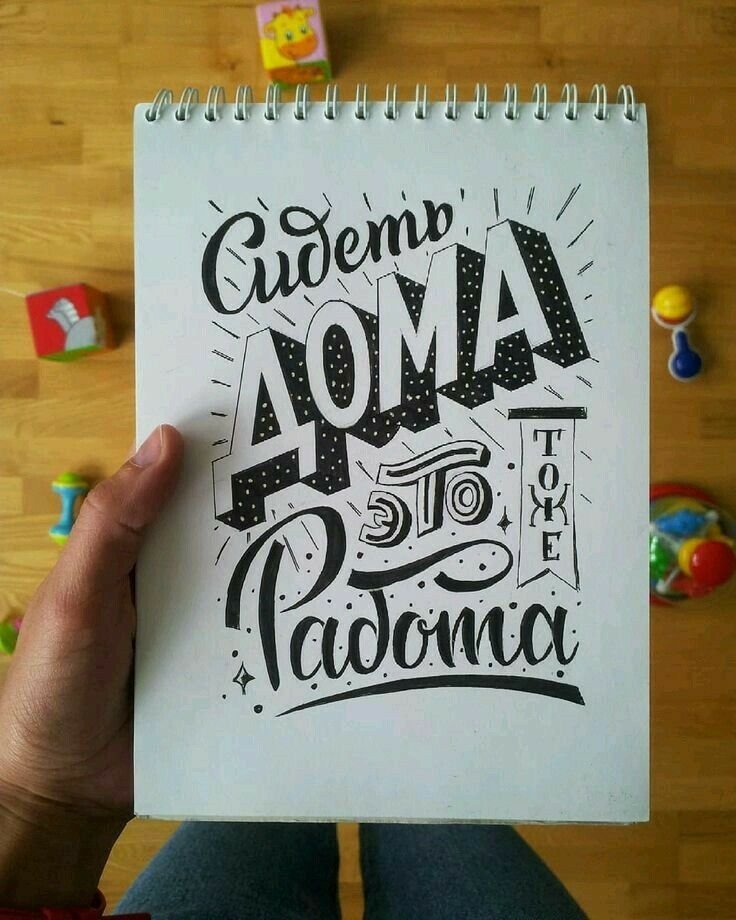 Сидеть
ДОМА
это ТОЖЕ
Работа